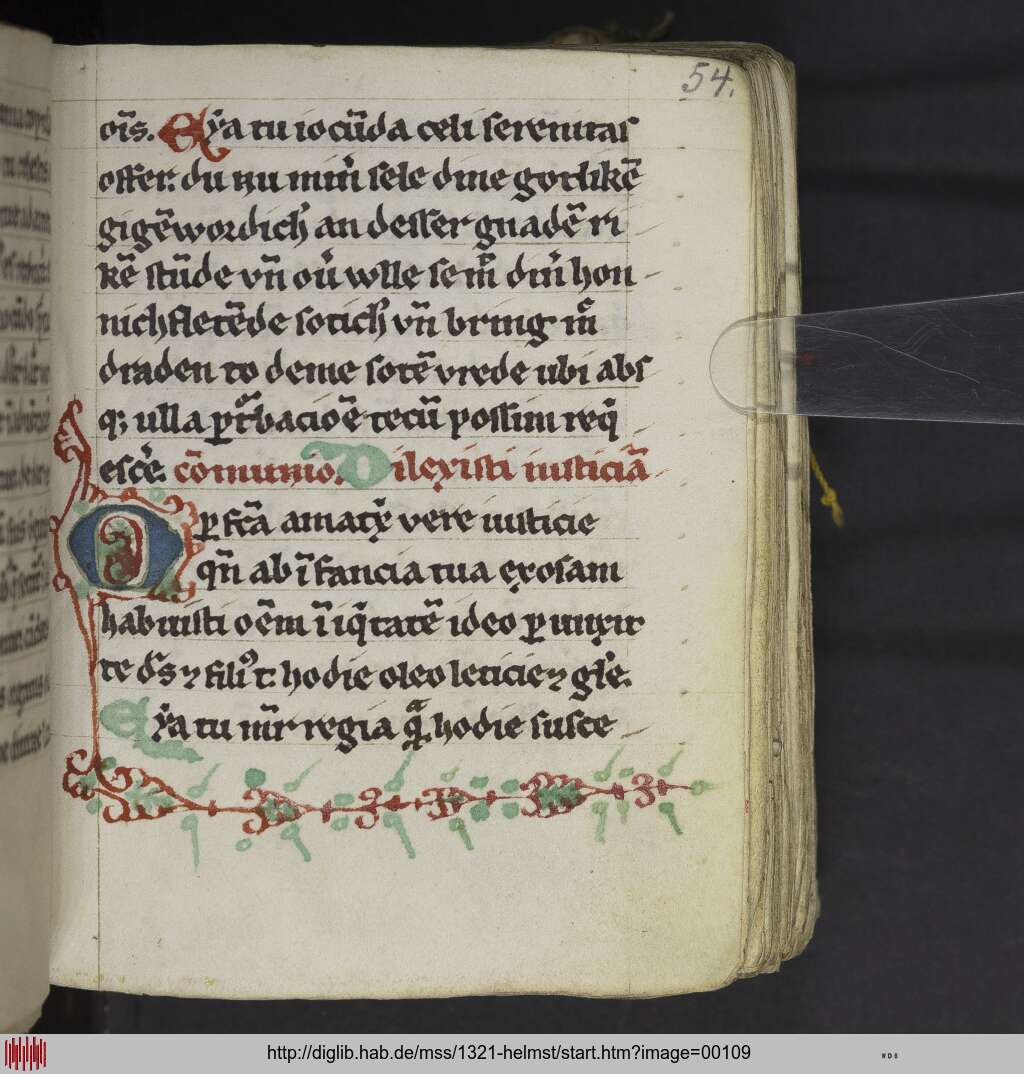 54.
oīs. Eya tu iocūda celi serenitas
offer. du nu min̄ sele dine gotlikē
gigēwordich' an desser gnadē ri
kē stūde vn̄ ou̓ wlle se m̄ din̓ hon
nich fletēde sotich' vn̄ bring m̄
draden to deme sotē vrede ubi abs
q; ulla ꝑt̓bacioē tecū possim req̓
esc̓e. cōmunio. Dilexisti iusticiā
O ꝑfcā amatx̓ vere iusticie
qn̄ ab īfancia tua exosam
habuisti oēm īiq̓tatē ideo ꝑunxit
te d̓s ⁊ fili⁹ t. hodie oleo leticie ⁊ gl̓e.
Eya tu mr̄ regia q̄ hodie susce
http://diglib.hab.de/mss/1321-helmst/start.htm?image=00109